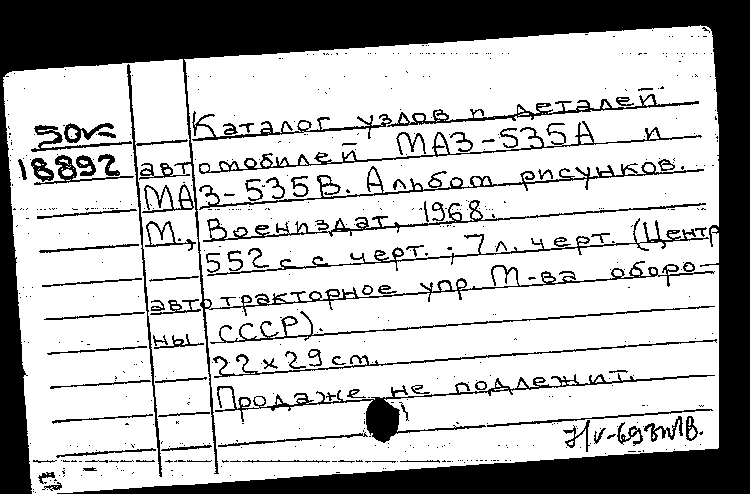 50к
18892
Каталог узлов и деталей
автомобилей МАЗ-535А и
МАЗ-535В. Альбом рисунков.
М., Воениздат, 1968.
552 с с черт.; 7 л. черт. (Центр
автотракторное упр. М-ва оборо-
ны СССР).
22 x 29 cm.
Продаже не подлежит.